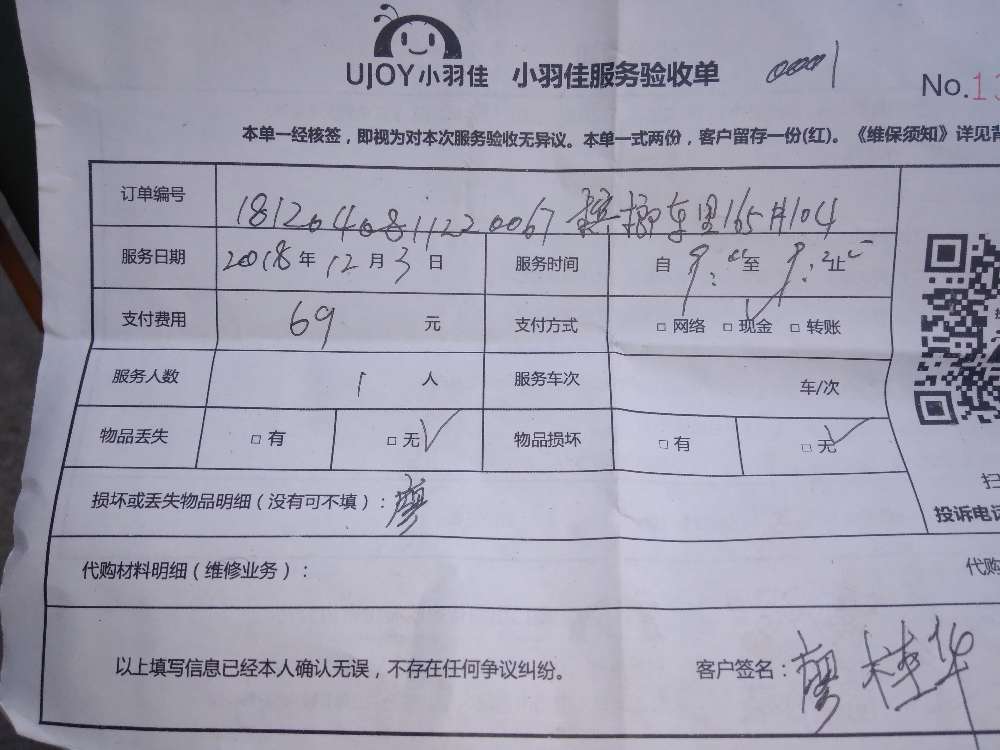 UJOY小羽佳 小羽佳服务验收单 0001
No.13
本单一经核签，即视为对本次服务验收无异议。本单一式两份，客户留存一份(红)。《维保须知》详见背
订单编号 1812040811220067 165#104
服务日期 2018年12月3日 服务时间 自 9: 至 9: 止
支付费用 69 元 支付方式 □ 网络 □ 现金 □ 转账
服务人数 1 人 服务车次 车/次
物品丢失 □ 有 □ 无√ 物品损坏 □ 有 □ 无√
扫
损坏或丢失物品明细（没有可不填）：廖
投诉电话
代购材料明细（维修业务）： 代购
以上填写信息已经本人确认无误，不存在任何争议纠纷。 客户签名：廖桂华